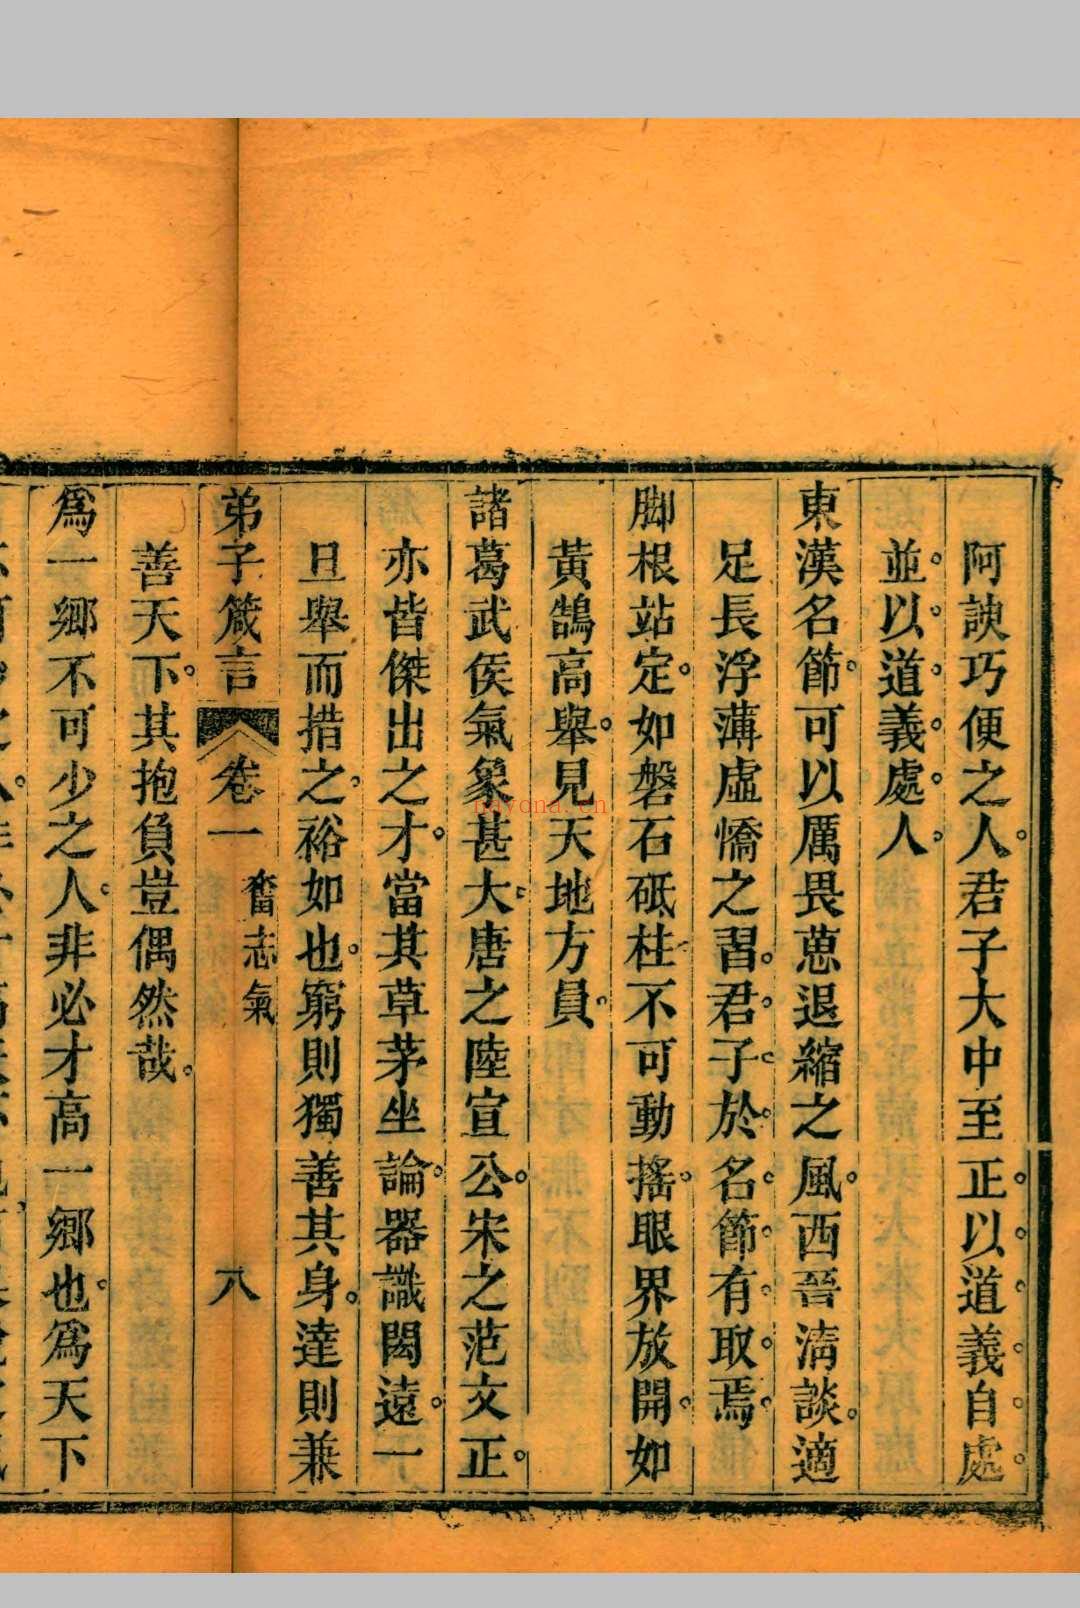 阿諛巧便之人。君子大中至正。以。道。義。自。處。
並。以。道。義。處。人。
東漢名節。可以厲畏葸退縮之風。西晉清談。適
足長浮薄虛憍之習。君。子。於。名。節。有。取。焉。
脚根站定。如磐石砥柱不可動搖。眼界放開。如
黃鵠高舉。見天地方員。
諸葛武侯氣象甚大。唐之陸宣公。宋之范文正。
亦皆傑出之才。當其草茅坐論。器識閎遠。一
旦舉而措之。裕如也。窮則獨善其身。達則兼
弟子箴言 卷一 奮志氣 八
善天下。其抱負豈偶然哉。
爲一鄉不可少之人。非必才高一鄉也。爲天下
nayona.cn